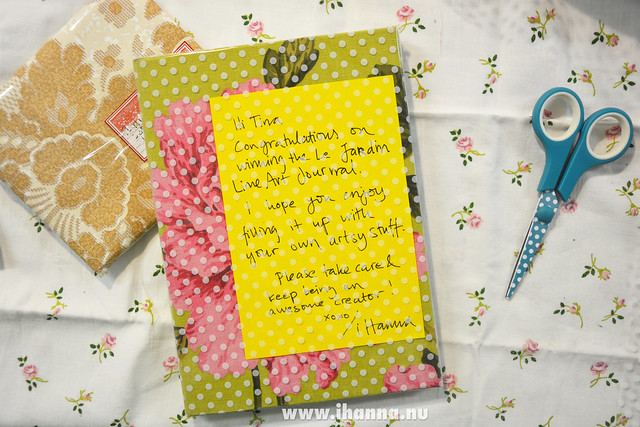 Hi Tina
Congratulations on
winning the Le Jardin
Line Art Journal.
I hope you enjoy
filling it up with
your own artsy stuff.
Please take care &
keep being an
awesome creator!
xoxo / iHanna
www.ihanna.nu